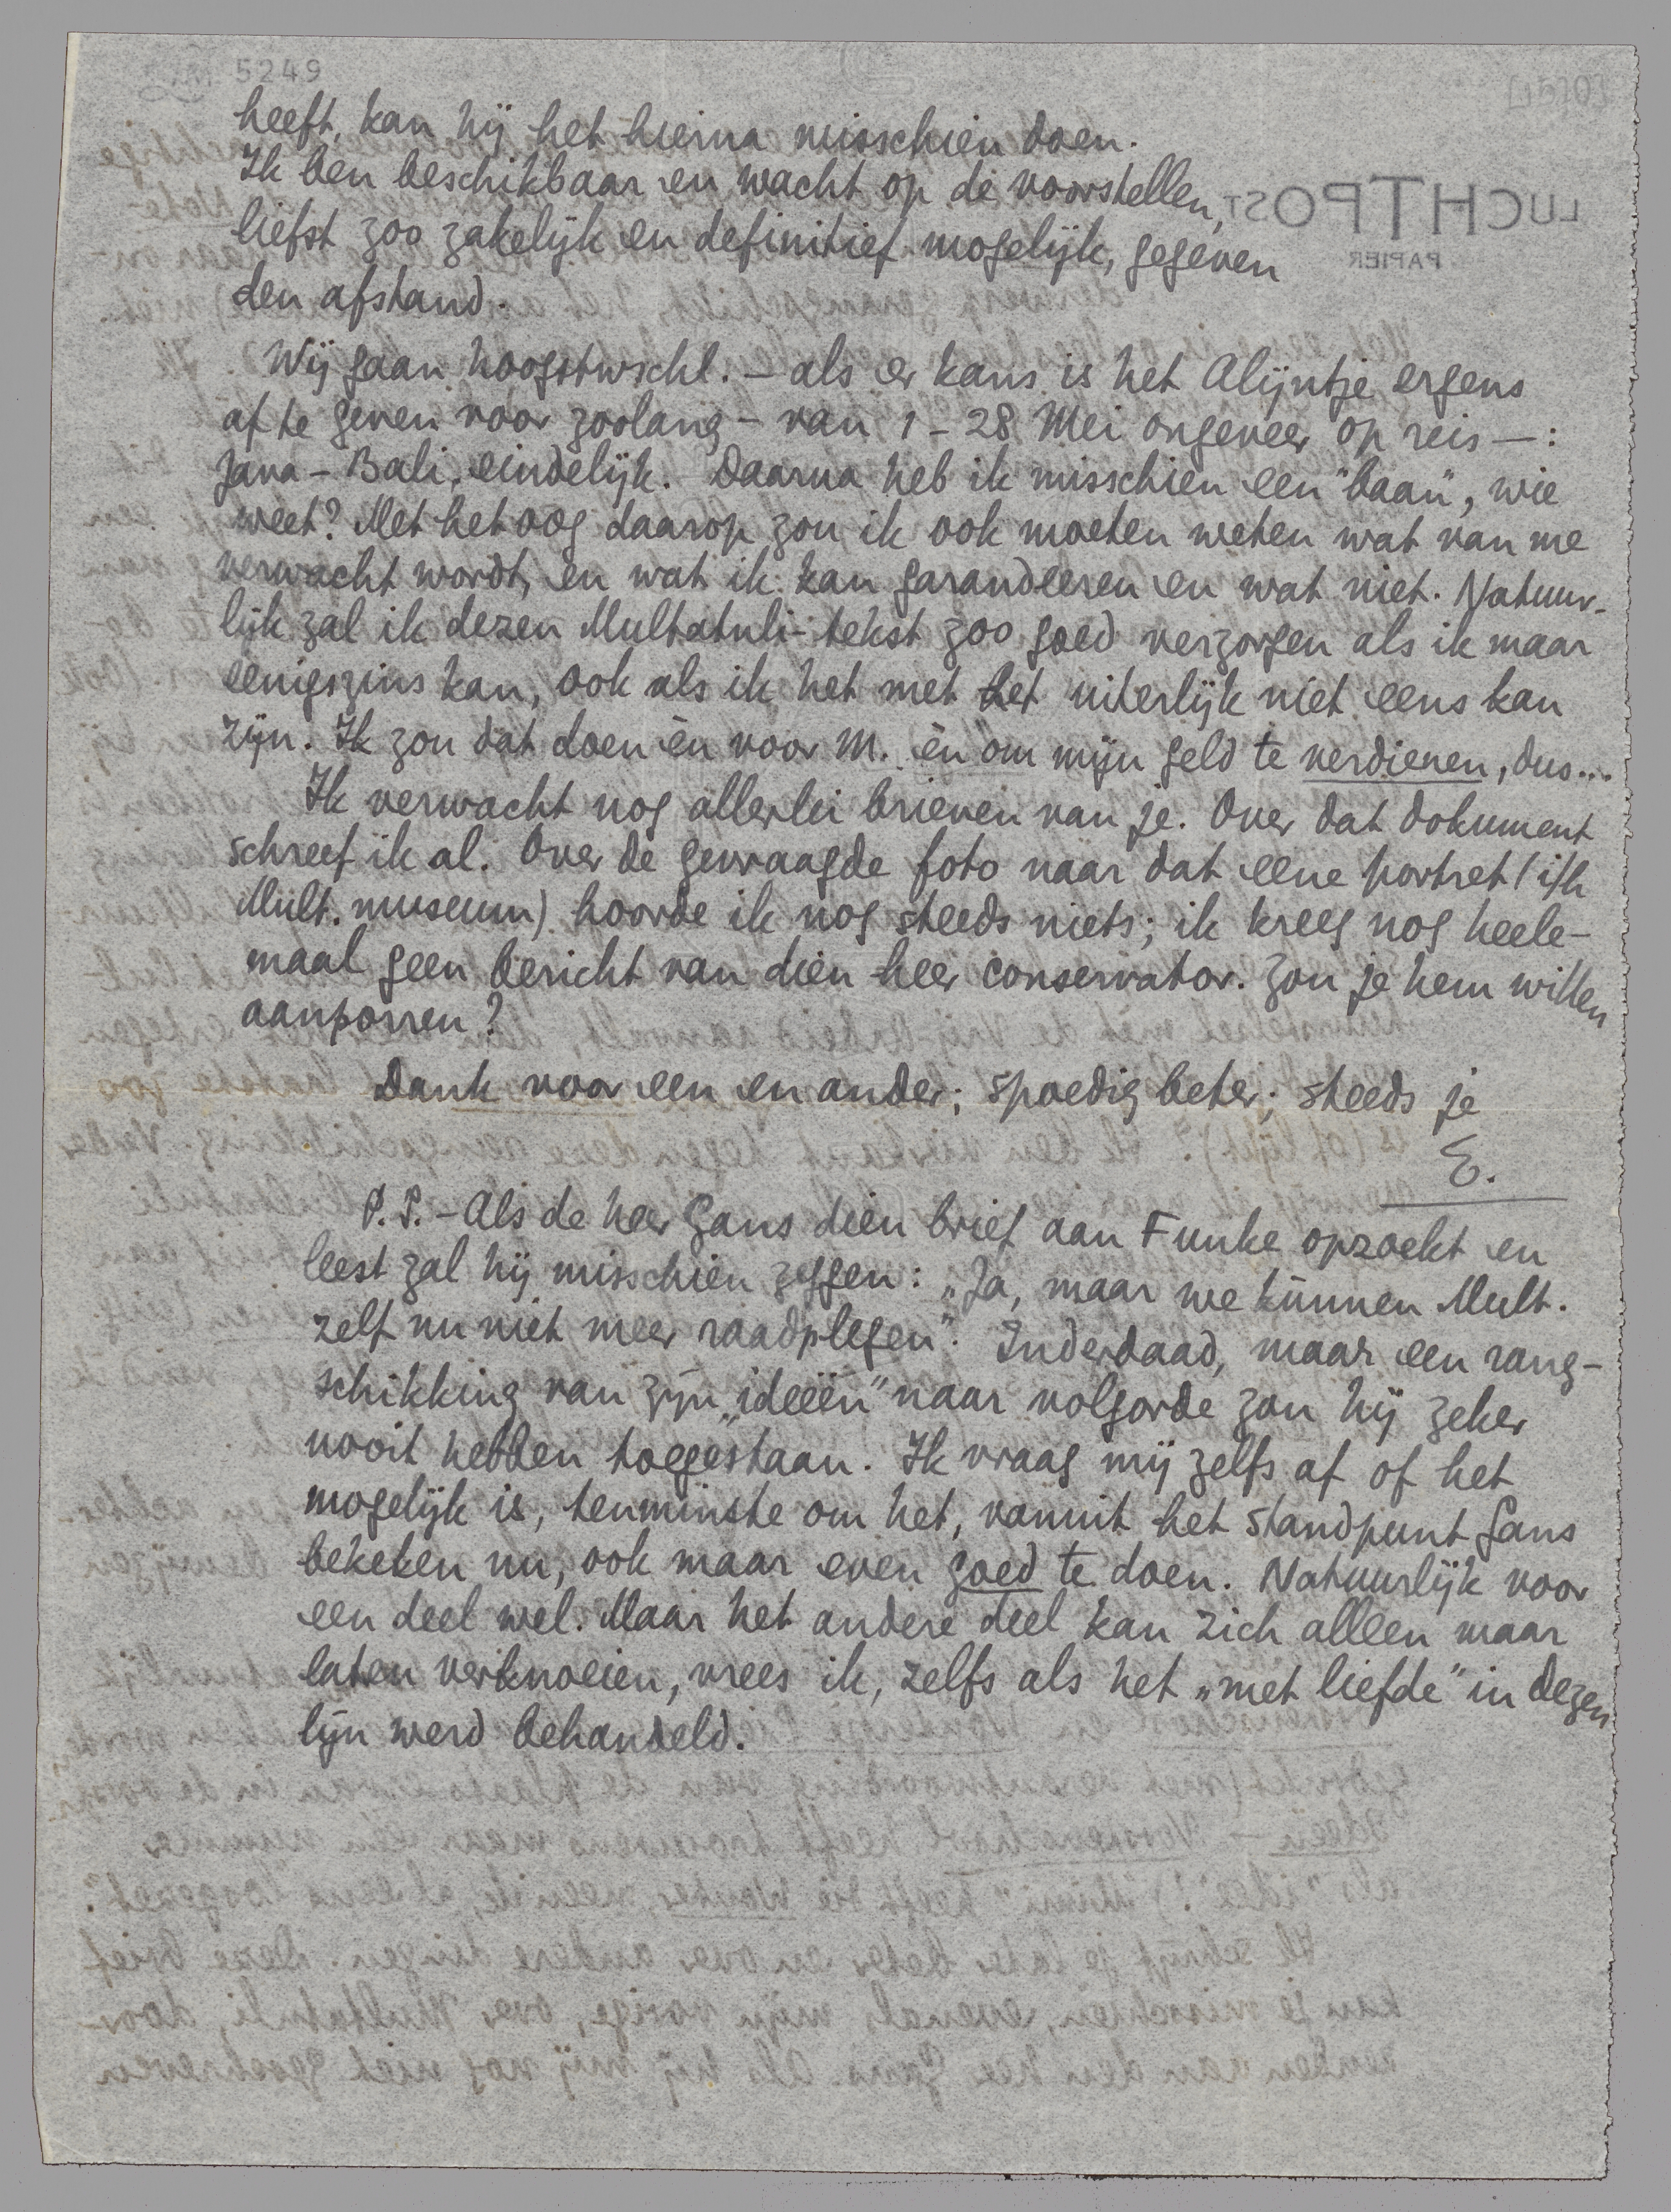 5249
heeft, kan hij het hierna misschien doen.
Ik ben beschikbaar en wacht op de voorstellen,
liefst zoo zakelijk en definitief mogelijk, gegeven
den afstand.
LUCHTPOST
PAPIER
Wij gaan hoogstwschl. – als er kans is het Alijntje ergens
af te geven voor zoolang – van 1 – 28 Mei ongeveer op reis –:
Java – Bali, eindelijk. Daarna heb ik misschien een "baan", wie
weet? Met het oog daarop zou ik ook moeten weten wat van me
verwacht wordt, en wat ik kan garandeeren en wat niet. Natuur-
lijk zal ik dezen Multatuli-tekst zoo goed verzorgen als ik maar
eenigszins kan, ook als ik het met het uiterlijk niet eens kan
zijn. Ik zou dat doen èn voor M. èn om mijn geld te verdienen, dus...
Ik verwacht nog allerlei brieven van je. Over dat dokument
schreef ik al. Over de gevraagde foto naar dat eene portret (i/h
Mult. museum) hoorde ik nog steeds niets; ik kreeg nog heele-
maal geen bericht van dien heer conservator. Zou je hem willen
aanporren?
Dank voor een en ander; spoedig beter; steeds je
E.
P.S. – Als de heer Gans dien brief aan Funke opzoekt en
leest zal hij misschien zeggen: „Ja, maar we kùnnen Mult.
zelf nu niet meer raadplegen". Inderdaad, maar een rang-
schikking van zijn „ideeën" naar volgorde zou hij zeker
nooit hebben toegestaan. Ik vraag mij zelfs af of het
mogelijk is, tenminste om het, vanuit het standpunt Gans
bekeken nu, ook maar even goed te doen. Natuurlijk voor
een deel wel. Maar het andere deel kan zich alleen maar
laten verknoeien, vrees ik, zelfs als het „met liefde" in dezen
lijn werd behandeld.